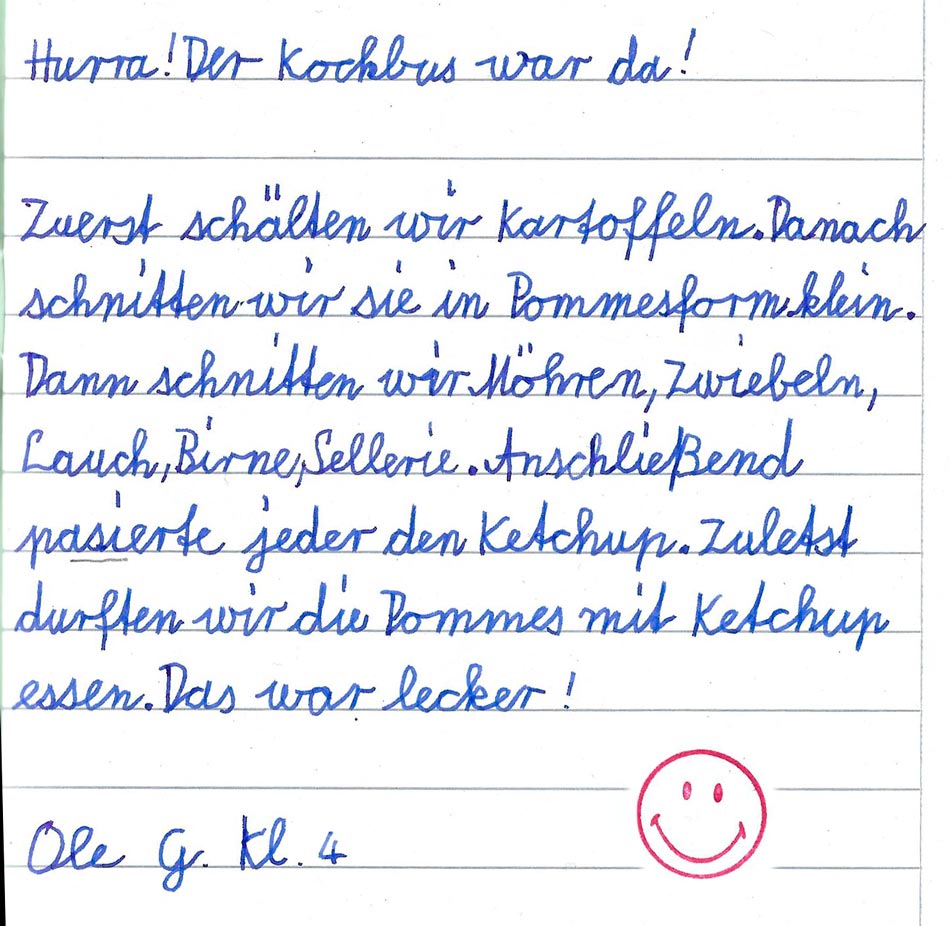 Hurra! Der Kochbus war da!
Zuerst schälten wir Kartoffeln. Danach
schnitten wir sie in Pommesform klein.
Dann schnitten wir Möhren, Zwiebeln,
Lauch, Birne, Sellerie. Anschließend
pasierte jeder den Ketchup. Zuletst
durften wir die Pommes mit Ketchup
essen. Das war lecker!
Ole G. Kl. 4